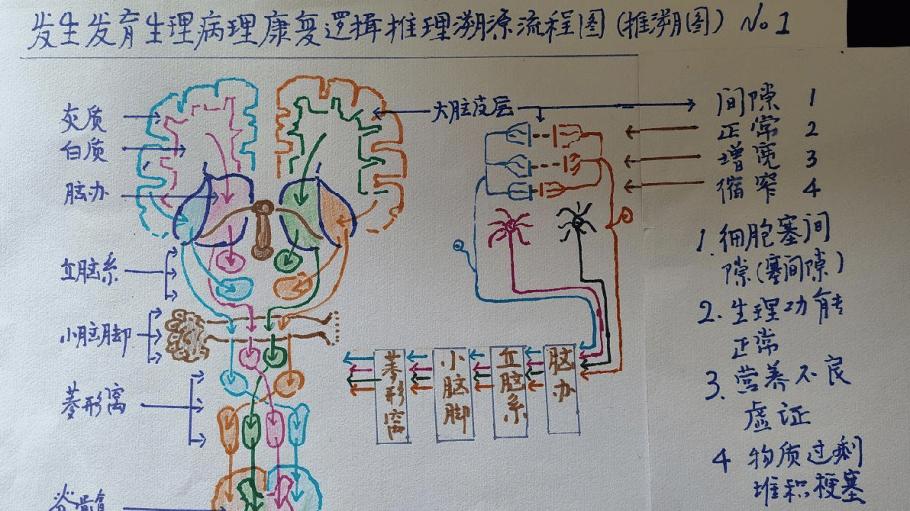 发生发育生理病理康复逻辑推理溯源流程图(推溯图) No1
灰质
白质
脑办
丘脑系
小脑脚
菱形窝
大脑皮层
间隙 1
正常 2
增宽 3
缩窄 4
1.细胞塞间
隙(塞间隙)
2.生理功能
正常
3.营养不良
虚证
4 物质过剩
堆积梗塞
菱形窝
小脑脚
丘脑系
脑办